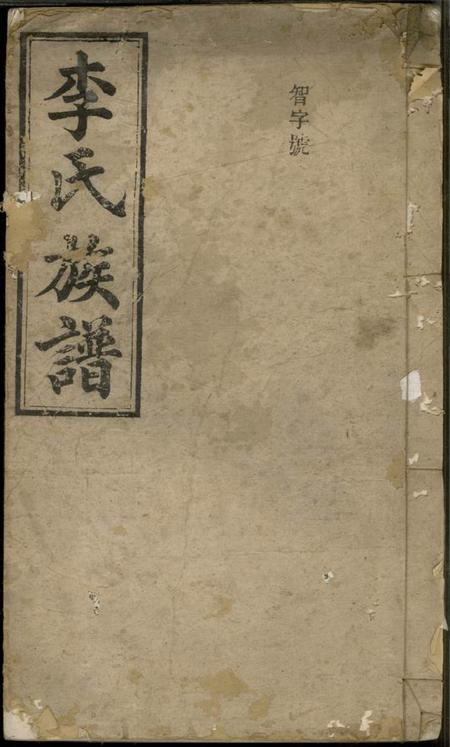 智字號
李氏族譜